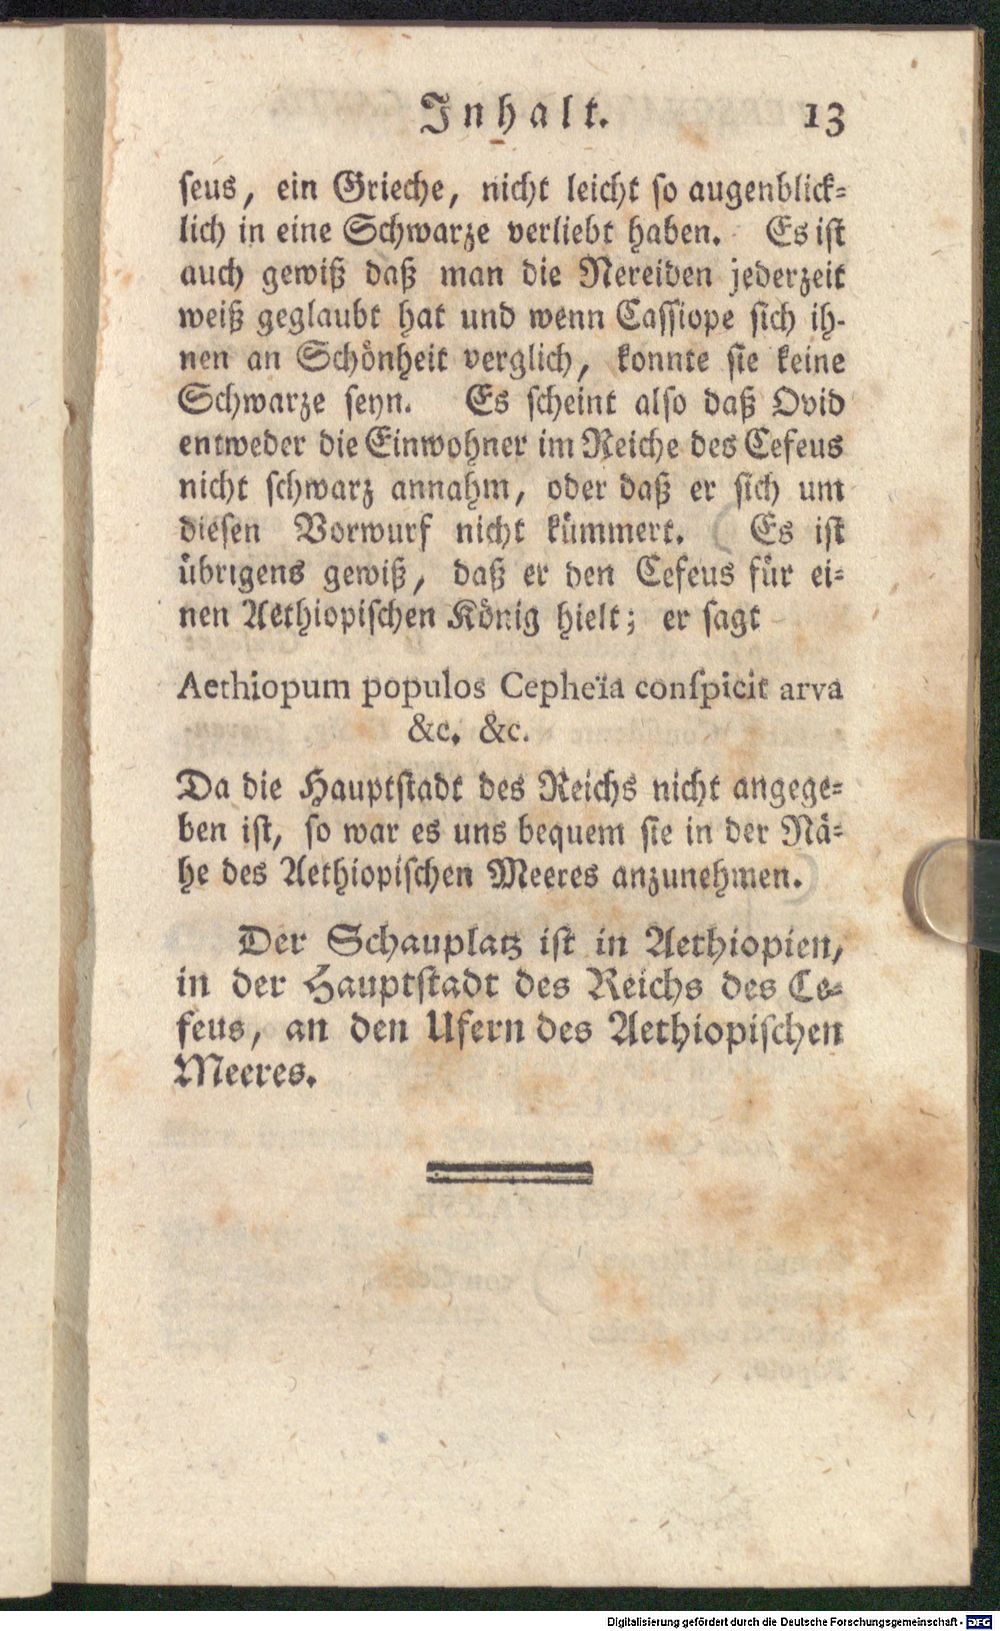 Inhalt. 13
seus, ein Grieche, nicht leicht so augenblick-
lich in eine Schwarze verliebt haben. Es ist
auch gewiß daß man die Nereiden jederzeit
weiß geglaubt hat und wenn Cassiope sich ih-
nen an Schönheit verglich, konnte sie keine
Schwarze seyn. Es scheint also daß Ovid
entweder die Einwohner im Reiche des Cefeus
nicht schwarz annahm, oder daß er sich um
diesen Vorwurf nicht kümmert. Es ist
übrigens gewiß, daß er den Cefeus für ei-
nen Aethiopischen König hielt; er sagt
Aethiopum populos Cepheïa conſpicit arva
&c. &c.
Da die Hauptstadt des Reichs nicht angege-
ben ist, so war es uns bequem sie in der Nä-
he des Aethiopischen Meeres anzunehmen.
Der Schauplatz ist in Aethiopien,
in der Hauptstadt des Reichs des Ce-
feus, an den Ufern des Aethiopischen
Meeres.
Digitalisierung gefördert durch die Deutsche Forschungsgemeinschaft - DFG